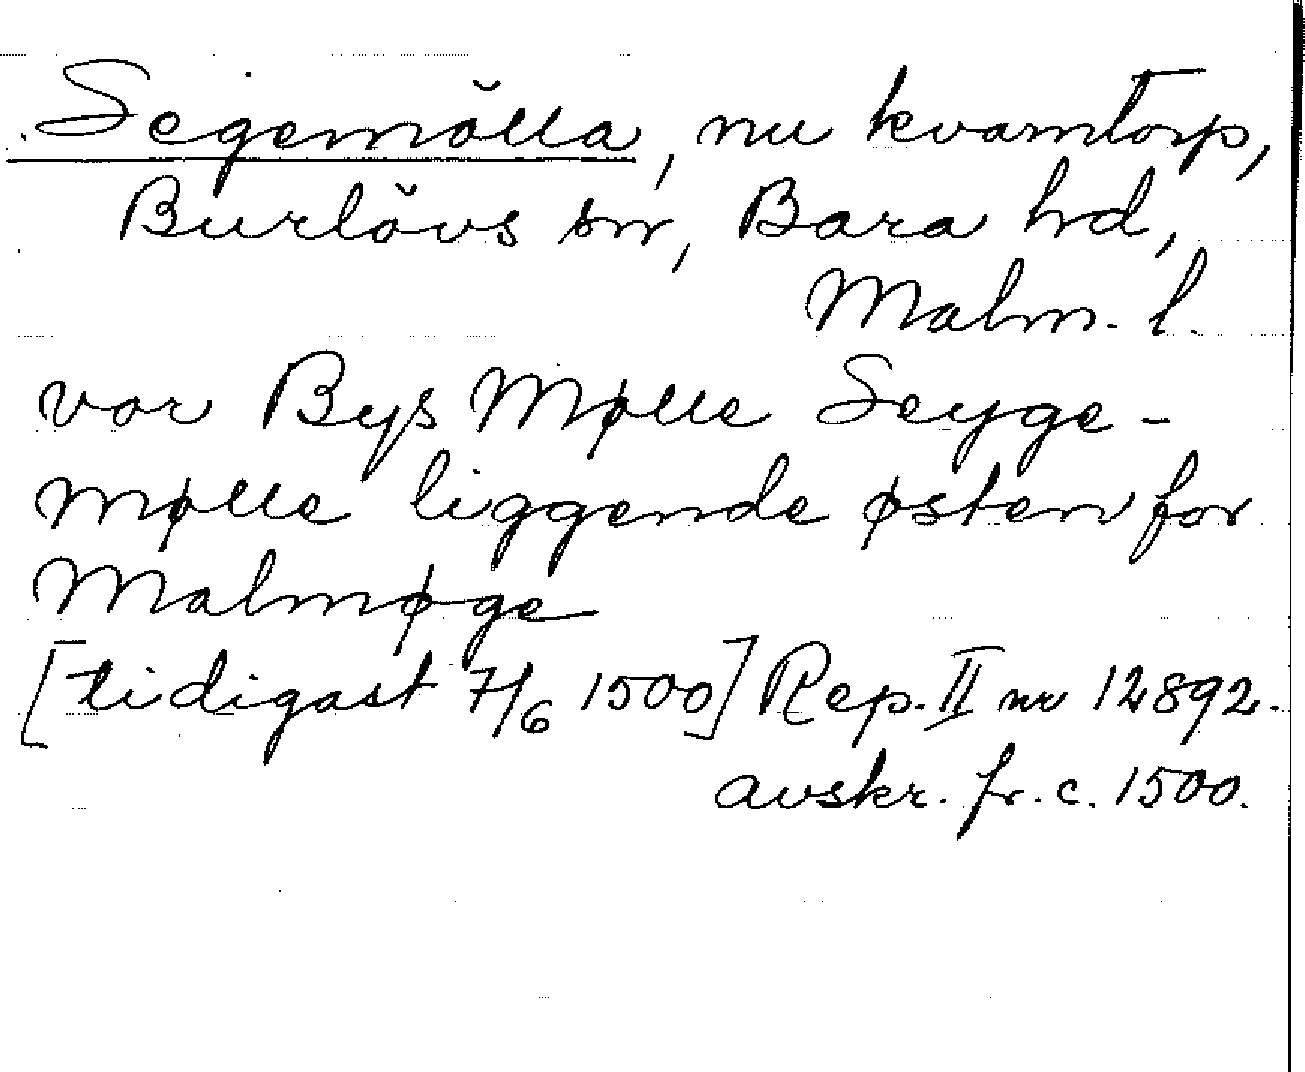 Segemölla, nu kvarntorp,
Burlövs sn, Bara hd,
Malm. l.
vor Bys Mølle Seyge-
mølle liggende østen for
Malmøge
[tidigast 7/6 1500] Rep. II nr 12892.
avskr. fr. c. 1500.